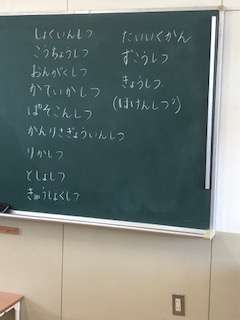 しょくいんしつ
こうちょうしつ
おんがくしつ
かていかしつ
ぱそこんしつ
かんりさぎょういんしつ
りかしつ
としょしつ
きゅうしょくしつ
たいいくかん
ずこうしつ
きょうしつ
(ほけんしつ?)